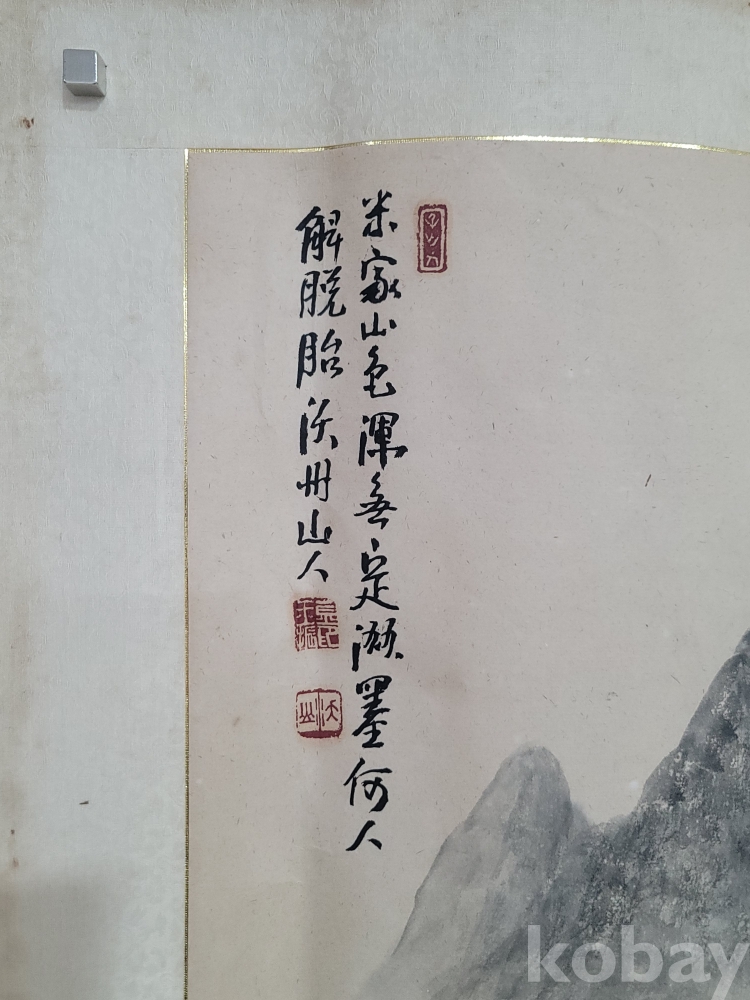 米家山色渾無定潑墨何人
解脫胎沃州山人
沃山
kobay